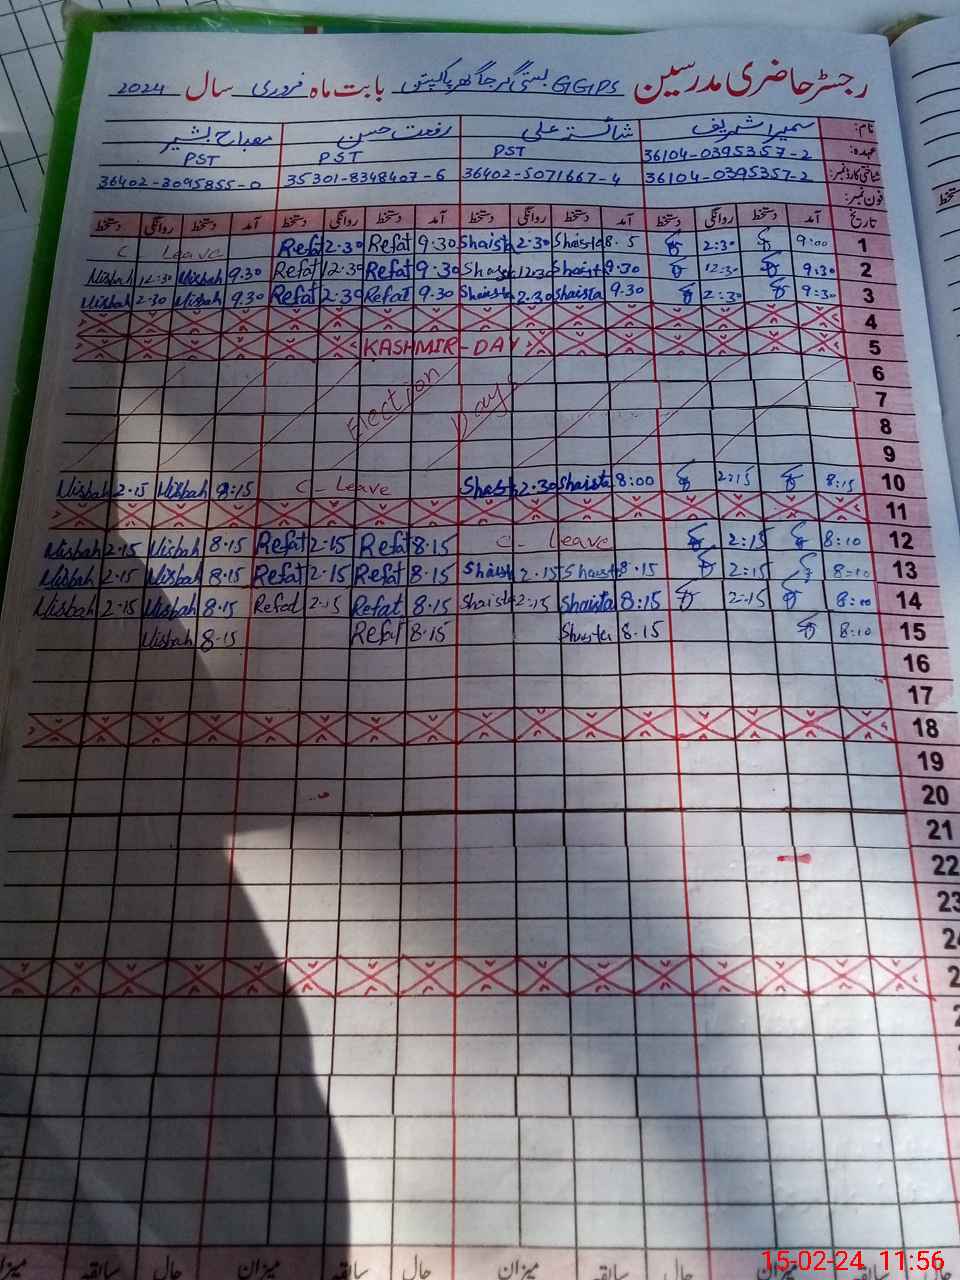 رجسٹر حاضری مدرسین GGPS بستی گرجا گھر پاکپتن بابت ماہ فروری سال 2024
نام: سمیرا شریف شائستہ علی رفعت حسن مصباح بشیر
عہدہ: 36104-0395357-2 PST PST PST
شناختی کارڈ نمبر: 36104-0395357-2 36402-5071667-4 35301-8348407-6 36402-3095855-0
فون نمبر:
تاریخ آمد دستخط روانگی دستخط آمد دستخط روانگی دستخط آمد دستخط روانگی دستخط آمد دستخط روانگی دستخط
C Leave Refat 2.30 Refat 9.30 Shaista 2.30 Shaista 8.5 2:30 9:00 1
Misbah 12.30 Misbah 9.30 Refat 12.30 Refat 9.30 Shaista 12.30 Shaista 9.30 12:30 9:30 2
Misbah 2.30 Misbah 9.30 Refat 2.30 Refat 9.30 Shaista 2.30 Shaista 9.30 2:30 9:30 3
4
KASHMIR-DAY 5
6
Election Day 7
8
9
Misbah 2.15 Misbah 8:15 C-Leave Shaista 2.30 Shaista 8:00 2:15 8:15 10
11
Misbah 2.15 Misbah 8.15 Refat 2.15 Refat 8.15 C- Leave 2:15 8:10 12
Misbah 2.15 Misbah 8.15 Refat 2.15 Refat 8.15 Shaista 2.15 Shaista 8.15 2:15 8:10 13
Misbah 2.15 Misbah 8.15 Refat 2.15 Refat 8.15 Shaista 2:15 Shaista 8:15 2:15 8:00 14
Misbah 8.15 Refat 8.15 Shaista 8.15 8:10 15
16
17
18
19
20
21
22
23
میزان سابقہ حال میزان سابقہ حال میزان سابقہ حال میزان
15-02-24 11:56